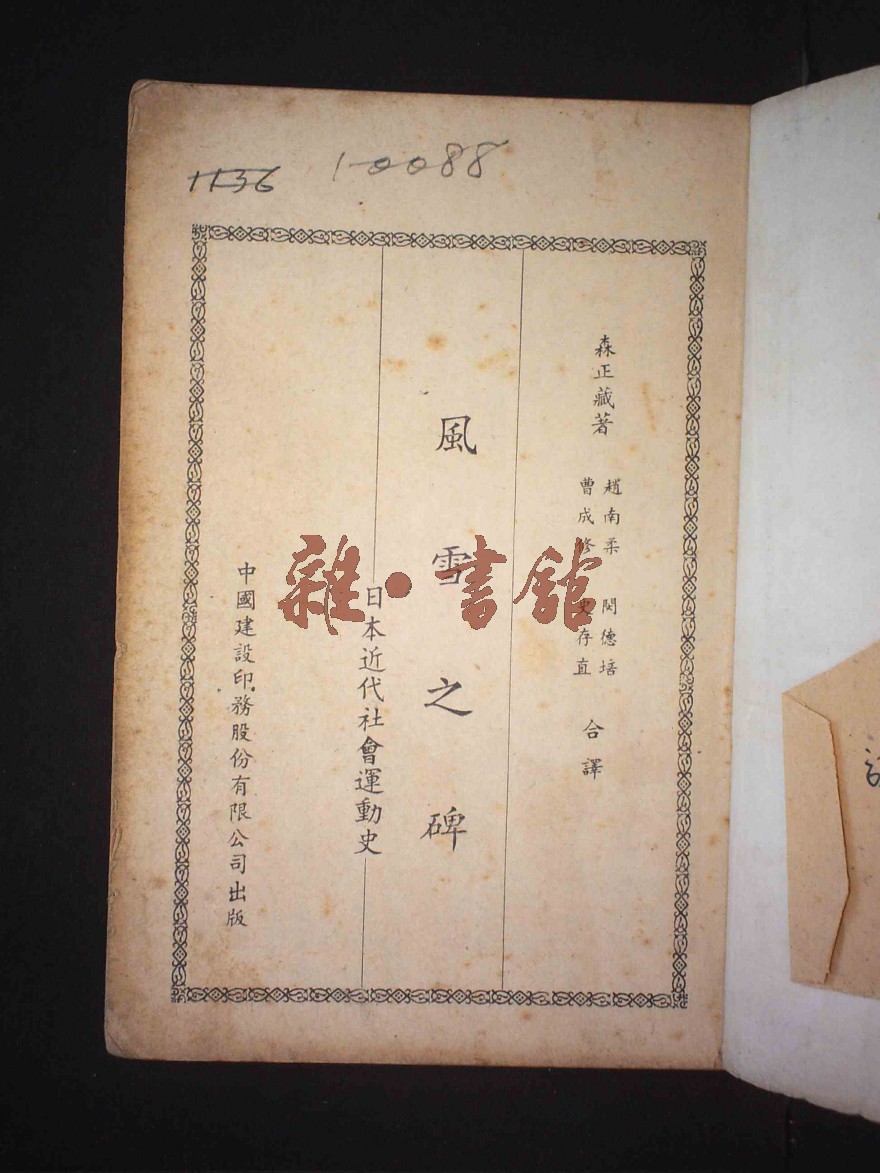 1136
10088
森正藏著
趙南柔 閔德培
曹成修 史存直
合譯
風雪之碑
日本近代社會運動史
中國建設印務股份有限公司出版
雜·書館